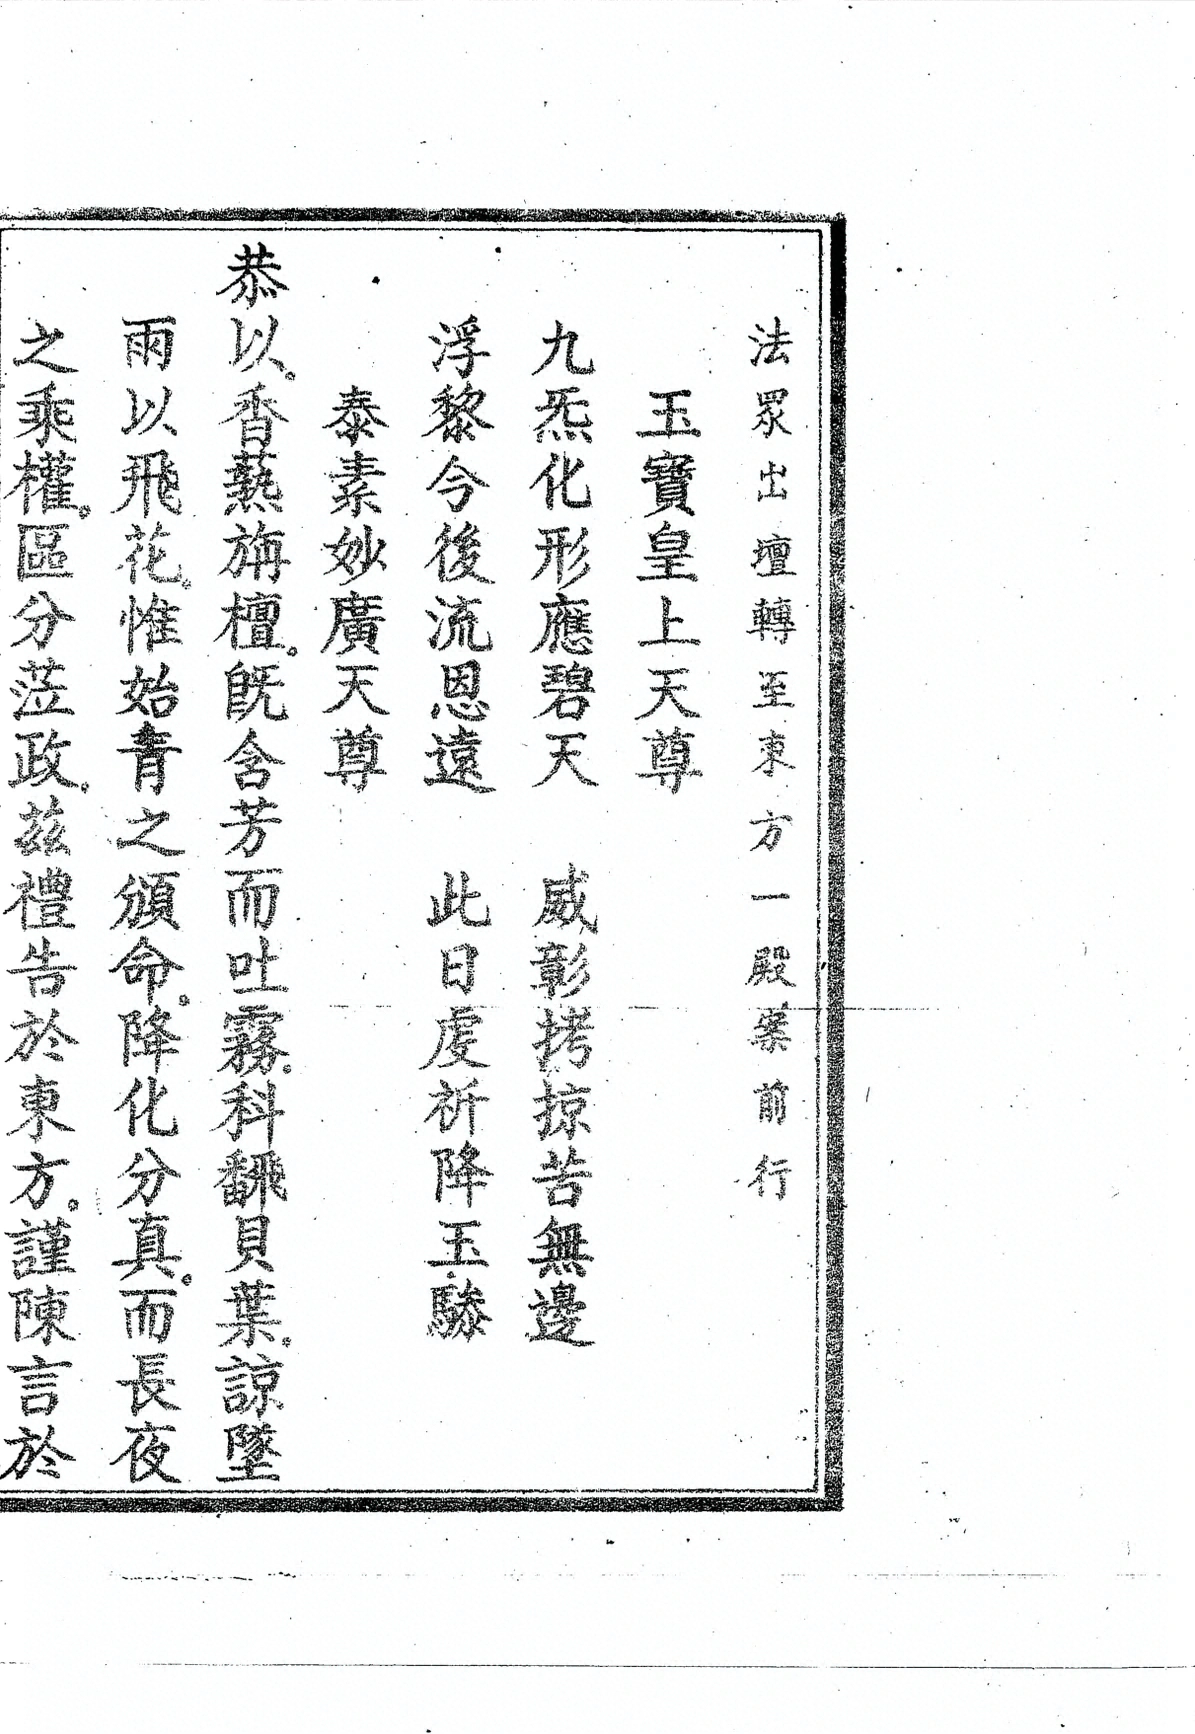 法眾出壇轉至東方一殿案前行
玉寶皇上天尊
九炁化形應碧天　威彰拷掠苦無邊
浮黎今後流恩遠　此日虔祈降玉驂
泰素妙廣天尊
恭以。香爇旃檀。旣含芳而吐霧。科翻貝葉。諒墜
雨以飛花。惟始青之頒命。降化分真。而長夜
之乘權。區分蒞政。茲禮告於東方。謹陳言於